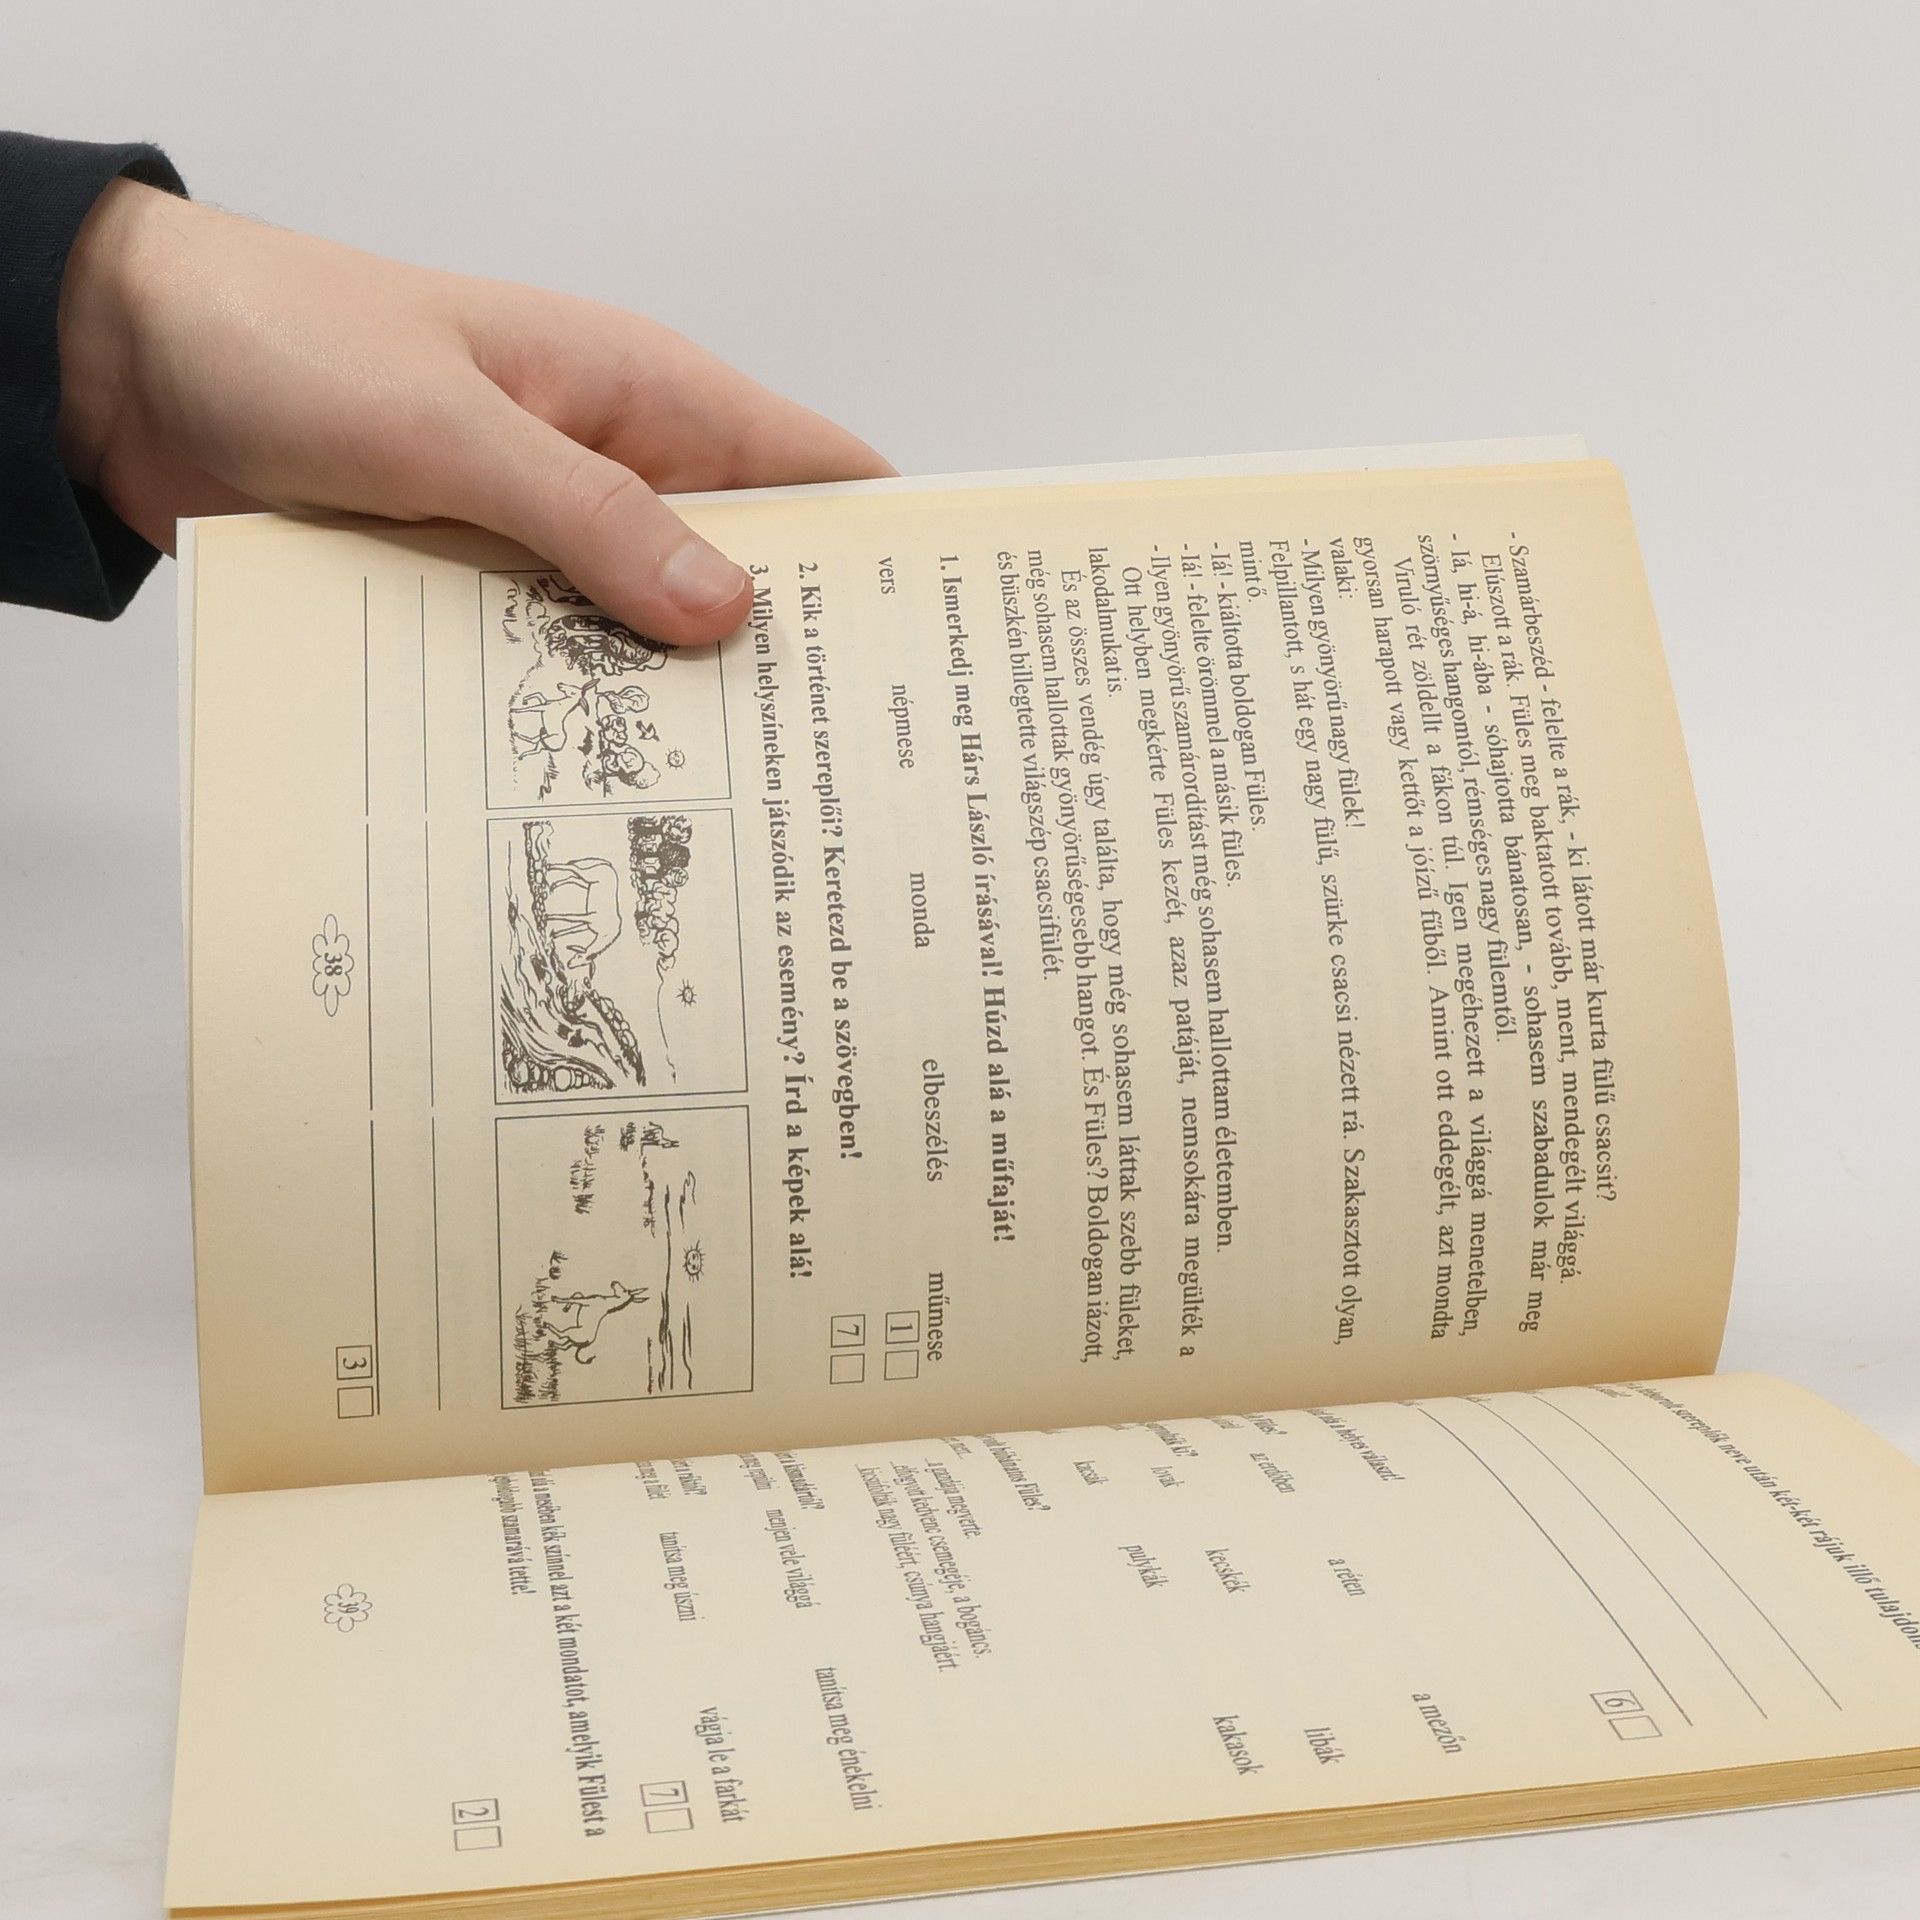 - Szamárbeszéd - felelte a rák, - ki látott már kurta fülű csacsit?
Elúszott a rák. Füles meg baktatott tovább, ment, mendegélt világgá.
- Iá, hi-á, hi-ába - sóhajtotta bánatosan, - sohasem szabadulok már meg
szörnyűséges hangomtól, rémséges nagy fülemtől.
Viruló rét zöldellt a fákon túl. Igen megéhezett a világgá menetelben,
gyorsan harapott vagy kettőt a jóízű fűből. Amint ott eddegélt, azt mondta
valaki:
- Milyen gyönyörű nagy fülek!
Felpillantott, s hát egy nagy fülű, szürke csacsi nézett rá. Szakasztott olyan,
mint ő.
- Iá! - kiáltotta boldogan Füles.
- Iá! - felelte örömmel a másik füles.
- Ilyen gyönyörű szamárordítást még sohasem hallottam életemben.
Ott helyben megkérte Füles kezét, azaz patáját, nemsokára megülték a
lakodalmukat is.
És az összes vendég úgy találta, hogy még sohasem láttak szebb füleket,
még sohasem hallottak gyönyörűségesebb hangot. És Füles? Boldogan iázott,
és büszkén billegtette világszép csacsifülét.
1. Ismerkedj meg Hárs László írásával! Húzd alá a műfaját!
vers népmese monda elbeszélés műmese
1
2. Kik a történet szereplői? Keretezd be a szövegben!
7
3. Milyen helyszíneken játszódik az esemény? Írd a képek alá!
3
38
felsorolt szereplők neve után két-két rájuk illő
6
alá a helyes választ!
Füles?
az erdőben a réten a mezőn
ki?
lovak kecskék libák
kacsák pulykák kakasok
búbánatos Füles?
a gazdája megverte.
elfogyott kedvenc csemegéje, a bogáncs.
kicsúfolták nagy füléért, csúnya hangjáért.
a kismadártól?
meg repülni menjen vele világgá tanítsa meg énekelni
a ráktól?
meg a fülét tanítsa meg úszni vágja le a farkát
7
alá a mesében kék színnel azt a két mondatot, amelyik Fülest a
legboldogabb szamarává tette!
2
39